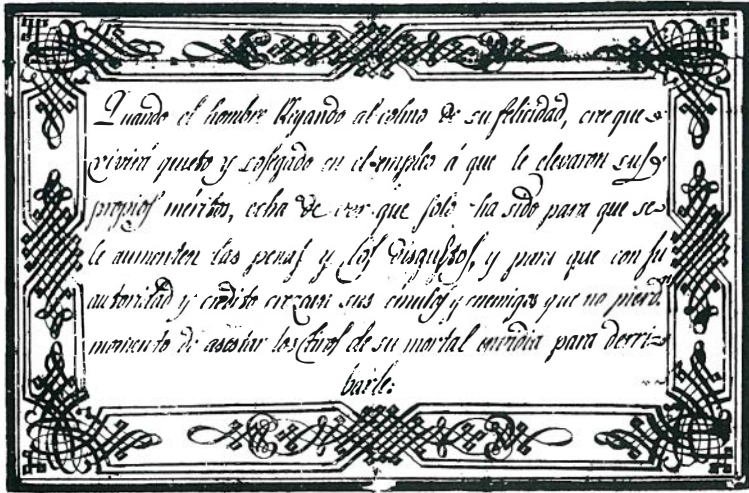 Quando el hombre llegando al colmo de su felicidad, cree que
vivirá quieto y sosegado en el empleo á que le elevaron sus
propios méritos, echa de ver que solo ha sido para que se
le aumenten las penas y los disgustos, y para que con su
autoridad y crédito crezcan sus émulos y enemigos que no pierd
momento de asestar los tiros de su mortal envidia para derri=
barle: